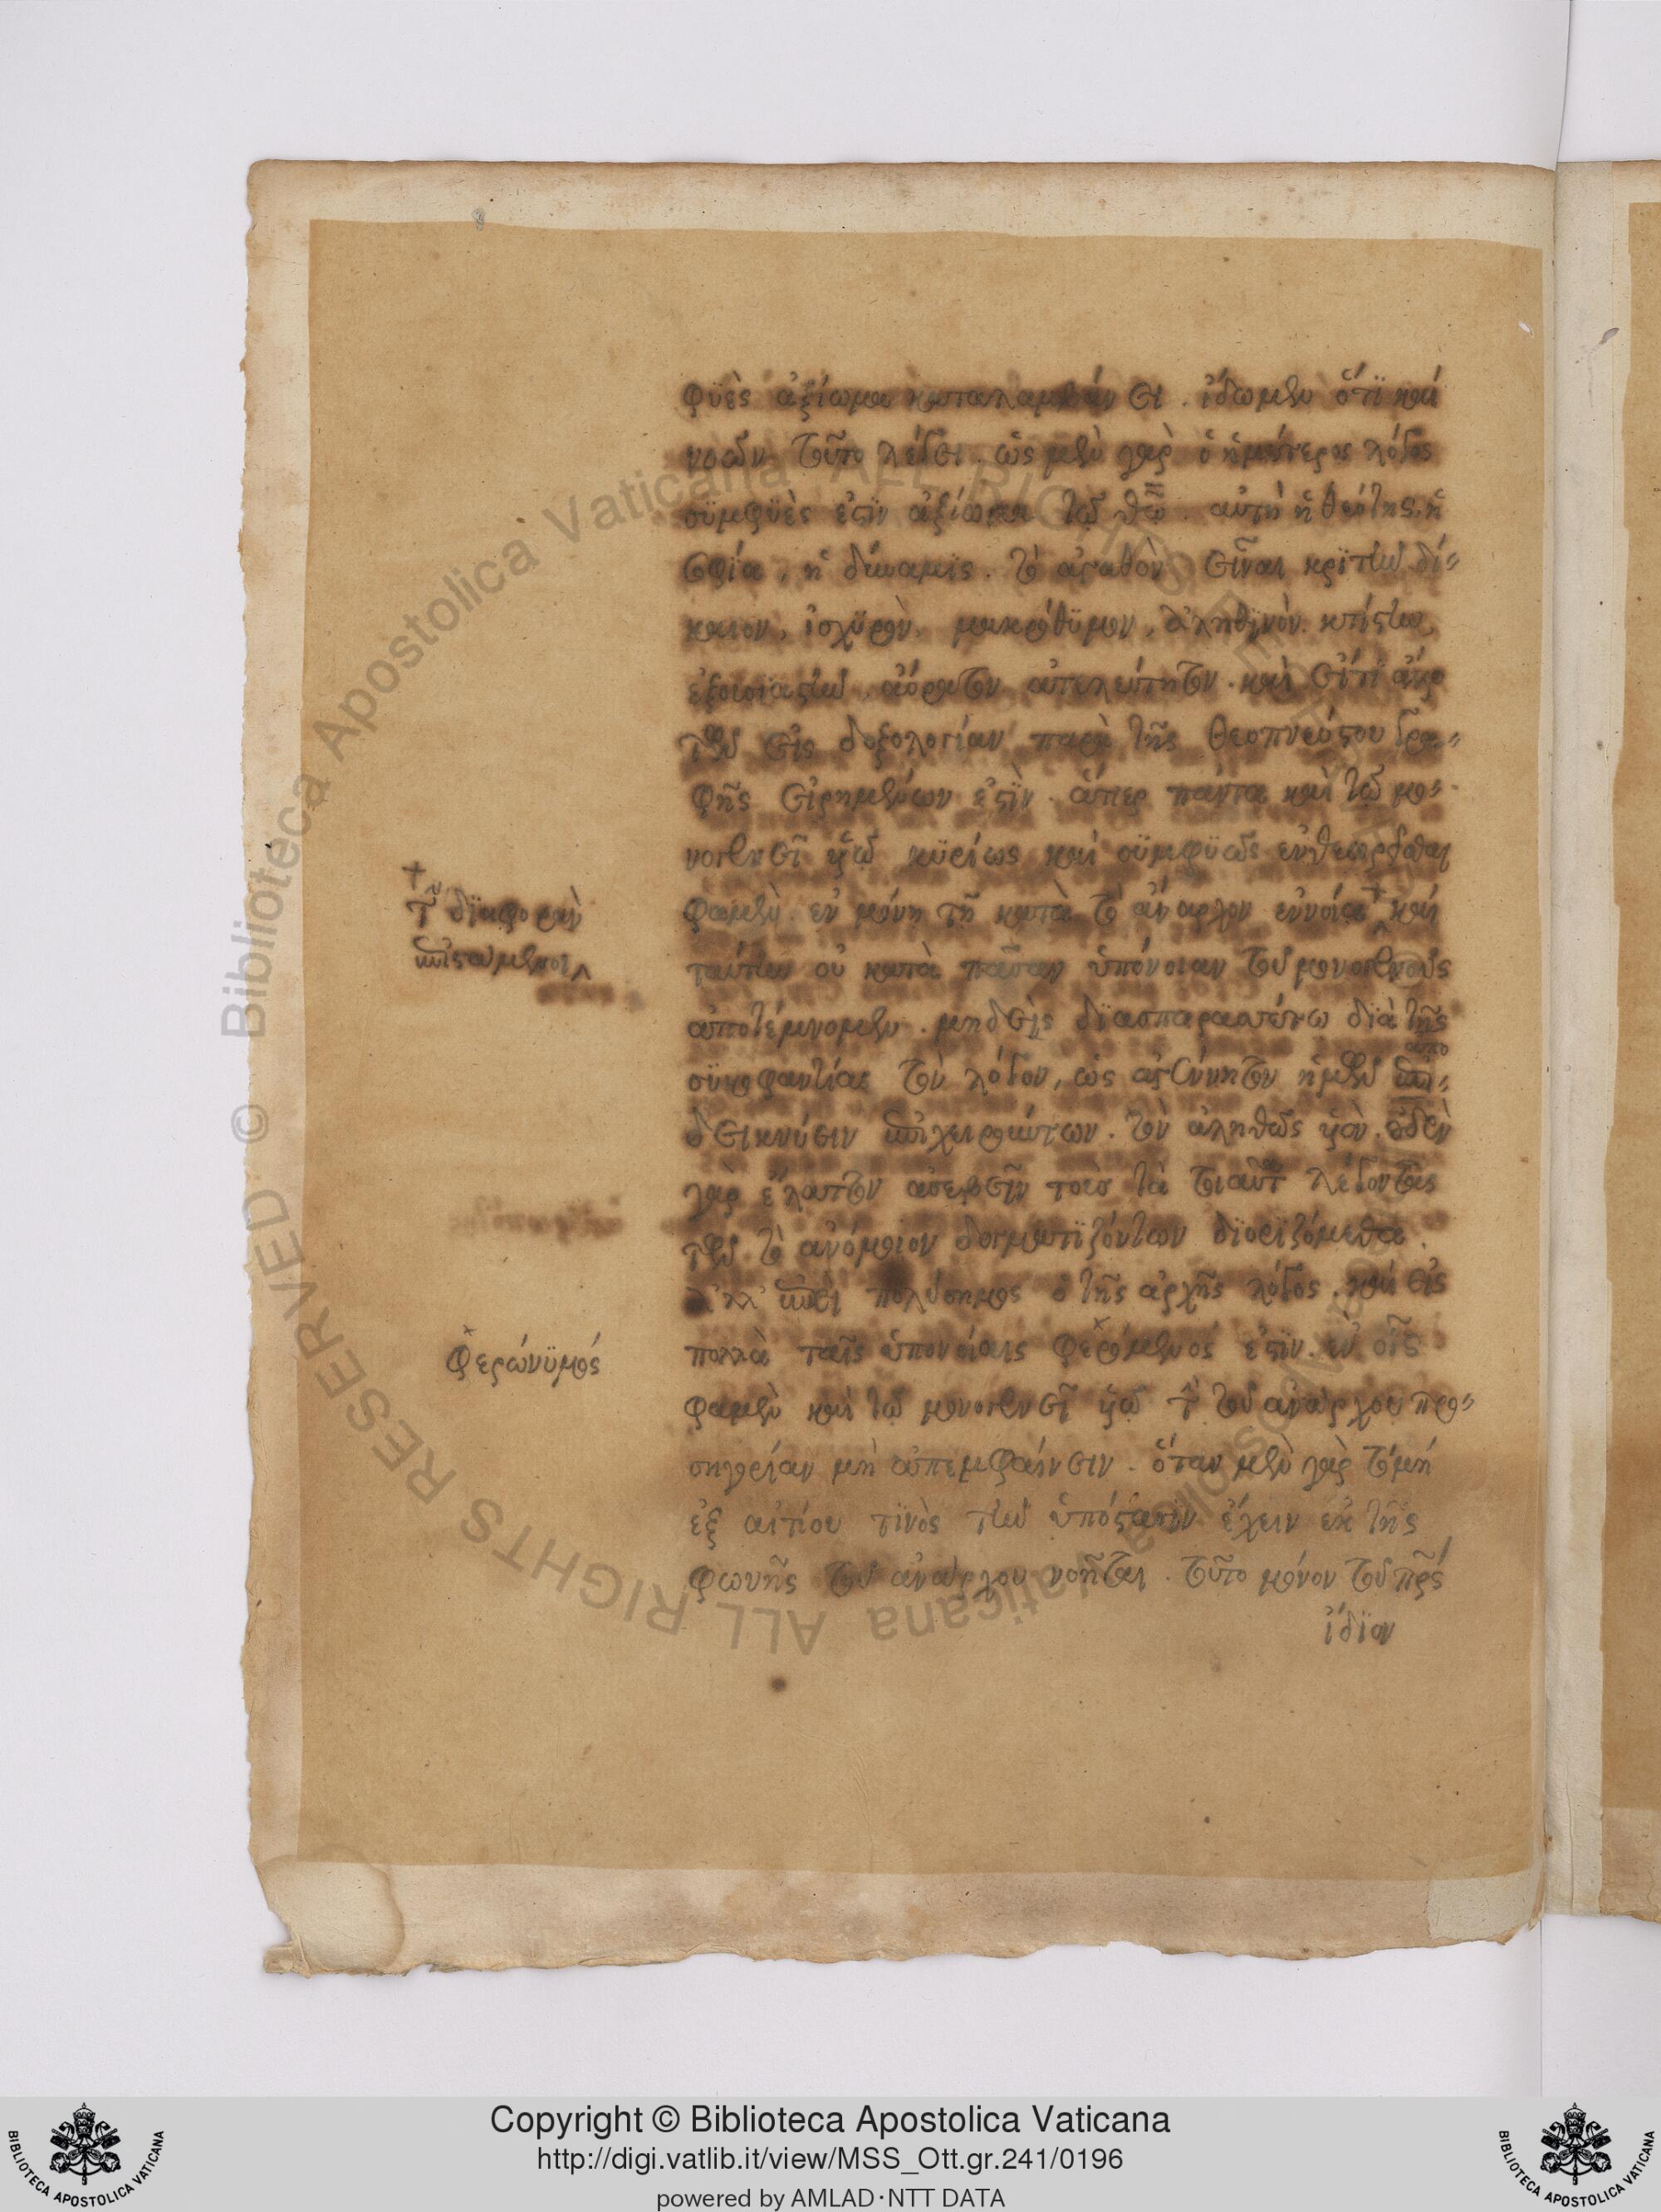 φϋὲς ἀξίωμα καταλαμβάνει . ἴδωμεν ὅτϊ καὶ
νοῶν τοῦτο λέγει . ὡς μὲν γὰρ ὁ ἡμέτερος λόγος
σϋμφϋὲς ἐστϊν ἀξίωμα τῷ θῶ . αὐτὴ ἡ θεότης, ἡ
σοφία, ἡ δύναμϊς . τὸ ἀγαθὸν εἶναι κρϊτὴν δί-
καιον, ἰσχϋρὸν, μακρόθϋμον, ἀληθϊνὸν. κτίστην,
ἐξουσϊαστὴν, ἀόρατον ἀτελεύτητον . καὶ εἴτι ἄλλο
τῶν εἰς δοξολογίαν παρὰ τῆς θεοπνεύστου γρα-
φῆς εἰρημένων ἐστὶν . ἅπερ πάντα καὶ τῷ μο-
νογενεῖ θῶ κϋρίως καὶ σϋμφϋῶς ἐνθεωρεῖσθαι
φαμὲν . ἐν μόνη τῆ κατὰ τὸ ἄναρχον ἐννοίᾳ + καὶ
ταύτην οὐ κατὰ πᾶσαν ὑπόνοιαν τοῦ μονογενοῦς
ἀποτέμνομεν . μηδεὶς δϊασπαρασσέτω δϊὰ τῆς
σϋκοφαντίας τὸν λόγον, ὡς ἀγέννητον ἡμῶν ἐπι-
ἀπο
δεικνύειν ἐπιχειρούντων . τὸν ἀληθῶς υἱὸν . οὐδὲν
γὰρ ἔλαττον ἀσεβεῖν τοὺς τὰ τοιαῦτα λέγοντας
τῶν τὸ ἀνόμοιον δογματϊζόντων δϊορϊζόμεθα .
ἀλλ' ἐπεὶ πολύσημος ὁ τῆς ἀρχῆς λόγος . καὶ εἰς
πολλὰ ταῖς ὑπονοίαις φερόμενος ἐστϊν . ἐν οἷς
φαμὲν καὶ τῷ μονογενεῖ θῶ τὴν τοῦ ἀνάρχου προ-
σηγορίαν μὴ ἀπεμφαίνειν . ὅταν μὲν γὰρ τὸ μὴ
ἐξ αἰτίου τϊνὸς τὴν ὑπόστασϊν ἔχειν ἐκ τῆς
φωνῆς τοῦ ἀνάρχου νοῆται . τοῦτο μόνον τοῦ πρς
ἴδϊον
+
τὴν δϊαφορὰν
ἐπιστάμενοι
φερώνϋμός
Copyright © Biblioteca Apostolica Vaticana
http://digi.vatlib.it/view/MSS_Ott.gr.241/0196
powered by AMLAD·NTT DATA
BIBLIOTECA APOSTOLICA VATICANA
BIBLIOTECA APOSTOLICA VATICANA
© Biblioteca Apostolica Vaticana ALL RIGHTS RESERVED